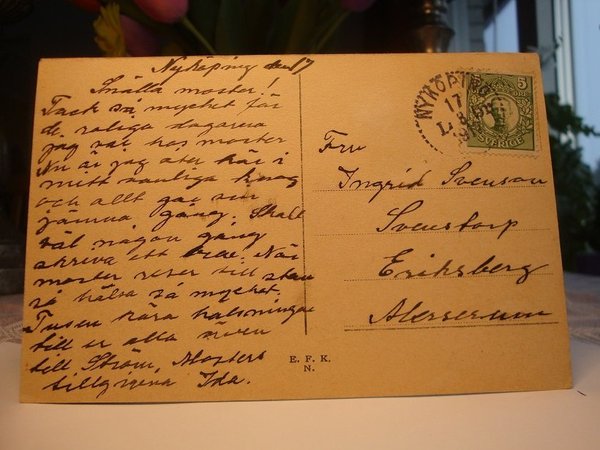 Nyköping den 17
Snälla moster!
Tack så mycket för
de roliga dagarna
jag var hos moster
Nu är jag åter här i
mitt vanliga
och allt går sin
jämna gång. Skall
väl någon gång
skriva ett brev. När
moster reser till stan
så hälsa så mycket.
Tusen kära hälsningar
till er alla även
till Ström, Mosters
tillgivna Ida.
E. F. K.
N.
NYKÖPING
17
5
SVERIGE
Fru
Ingrid Svenson
Svenstorp
Eriksberg
Alerserum